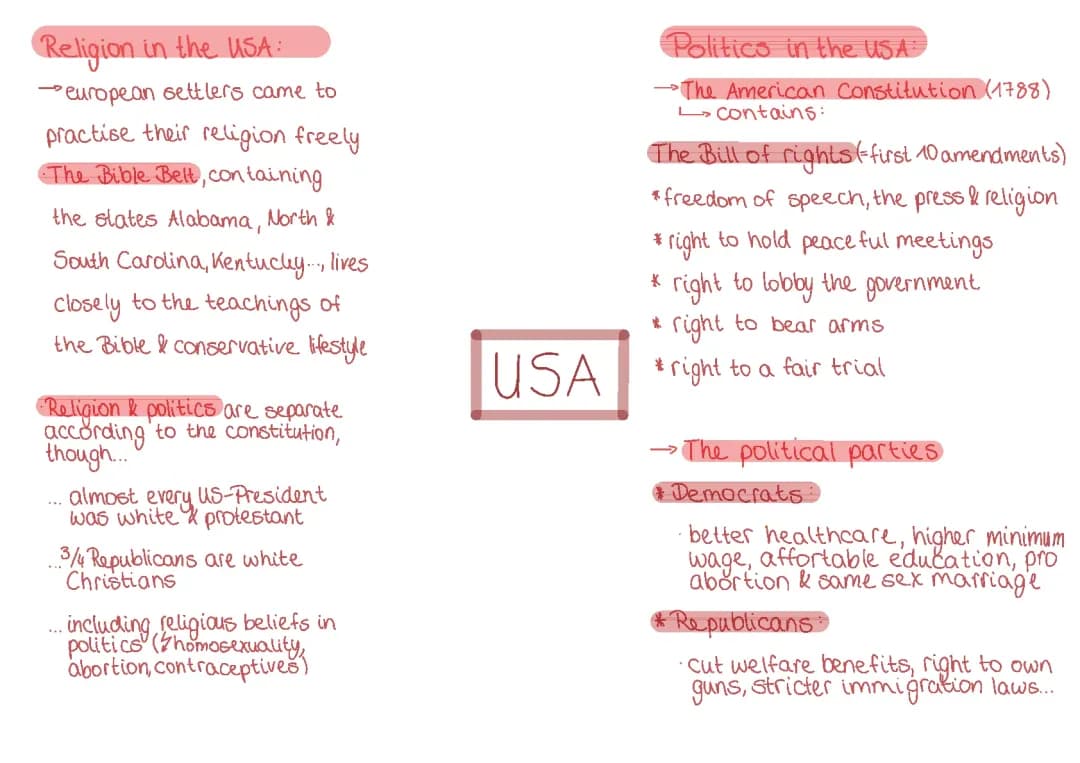 Religion in the USA:
→ european settlers came to
practise their religion freely
· The Bible Belt, containing
the states Alabama, North &
South Carolina, Kentucky..., lives
closely to the teachings of
the Bible & conservative lifestyle
· Religion & politics are separate
according to the constitution,
though...
... almost every US-President
was white & protestant
... 3/4 Republicans are white
Christians
... including religious beliefs in
politics (↯homosexuality,
abortion, contraceptives)
USA
Politics in the USA:
→ The American Constitution (1788)
↳ contains:
The Bill of rights (=first 10 amendments)
* freedom of speech, the press & religion
* right to hold peaceful meetings
* right to lobby the government
* right to bear arms
* right to a fair trial
→ The political parties
* Democrats:
· better healthcare, higher minimum
wage, affortable education, pro
abortion & same sex marriage
* Republicans:
· cut welfare benefits, right to own
guns, stricter immigration laws...